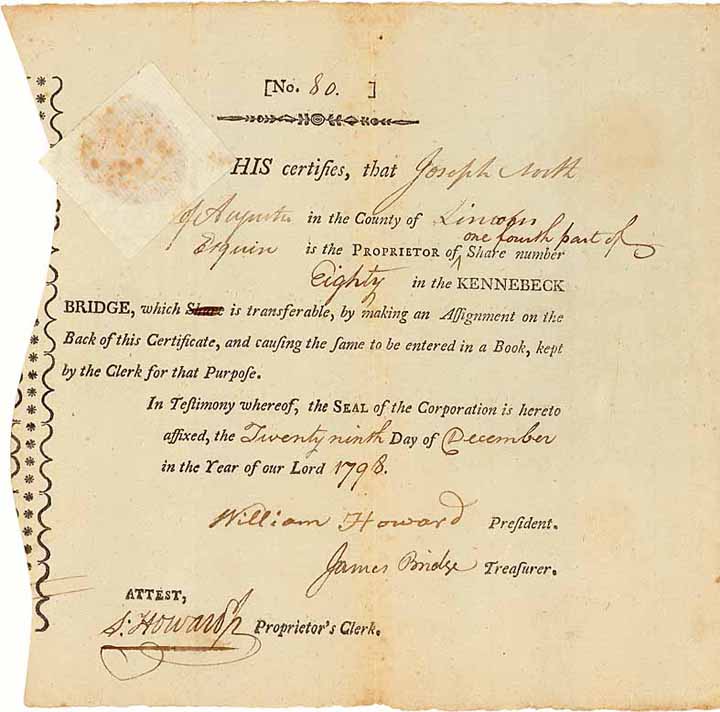 [No. 80. ]
HIS certifies, that Joseph North
of Augusta in the County of Lincoln
one fourth part of
Esquire is the PROPRIETOR of ^ Share number
Eighty in the KENNEBECK
BRIDGE, which Share is transferable, by making an Aſſignment on the
Back of this Certificate, and cauſing the ſame to be entered in a Book, kept
by the Clerk for that Purpoſe.
In Teſtimony whereof, the SEAL of the Corporation is hereto
affixed, the Twenty ninth Day of December
in the Year of our Lord 1798.
William Howard Preſident.
James Bridge Treaſurer.
ATTEST,
S. Howard Proprietor's Clerk.